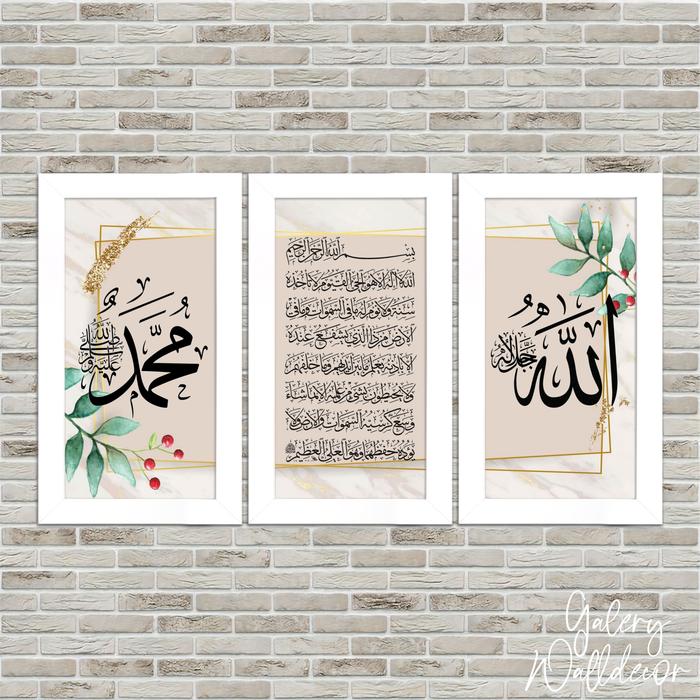 الله جل جلاله
بسم الله الرحمن الرحيم
الله لا إله إلا هو الحي القيوم لا تأخذه
سنة ولا نوم له ما في السموات وما في
الأرض من ذا الذي يشفع عنده
إلا بإذنه يعلم ما بين أيديهم وما خلفهم
ولا يحيطون بشيء من علمه إلا بما شاء
وسع كرسيه السموات والأرض ولا
يؤده حفظهما وهو العلي العظيم
محمد صلى الله عليه وسلم
Galery
Walldecor